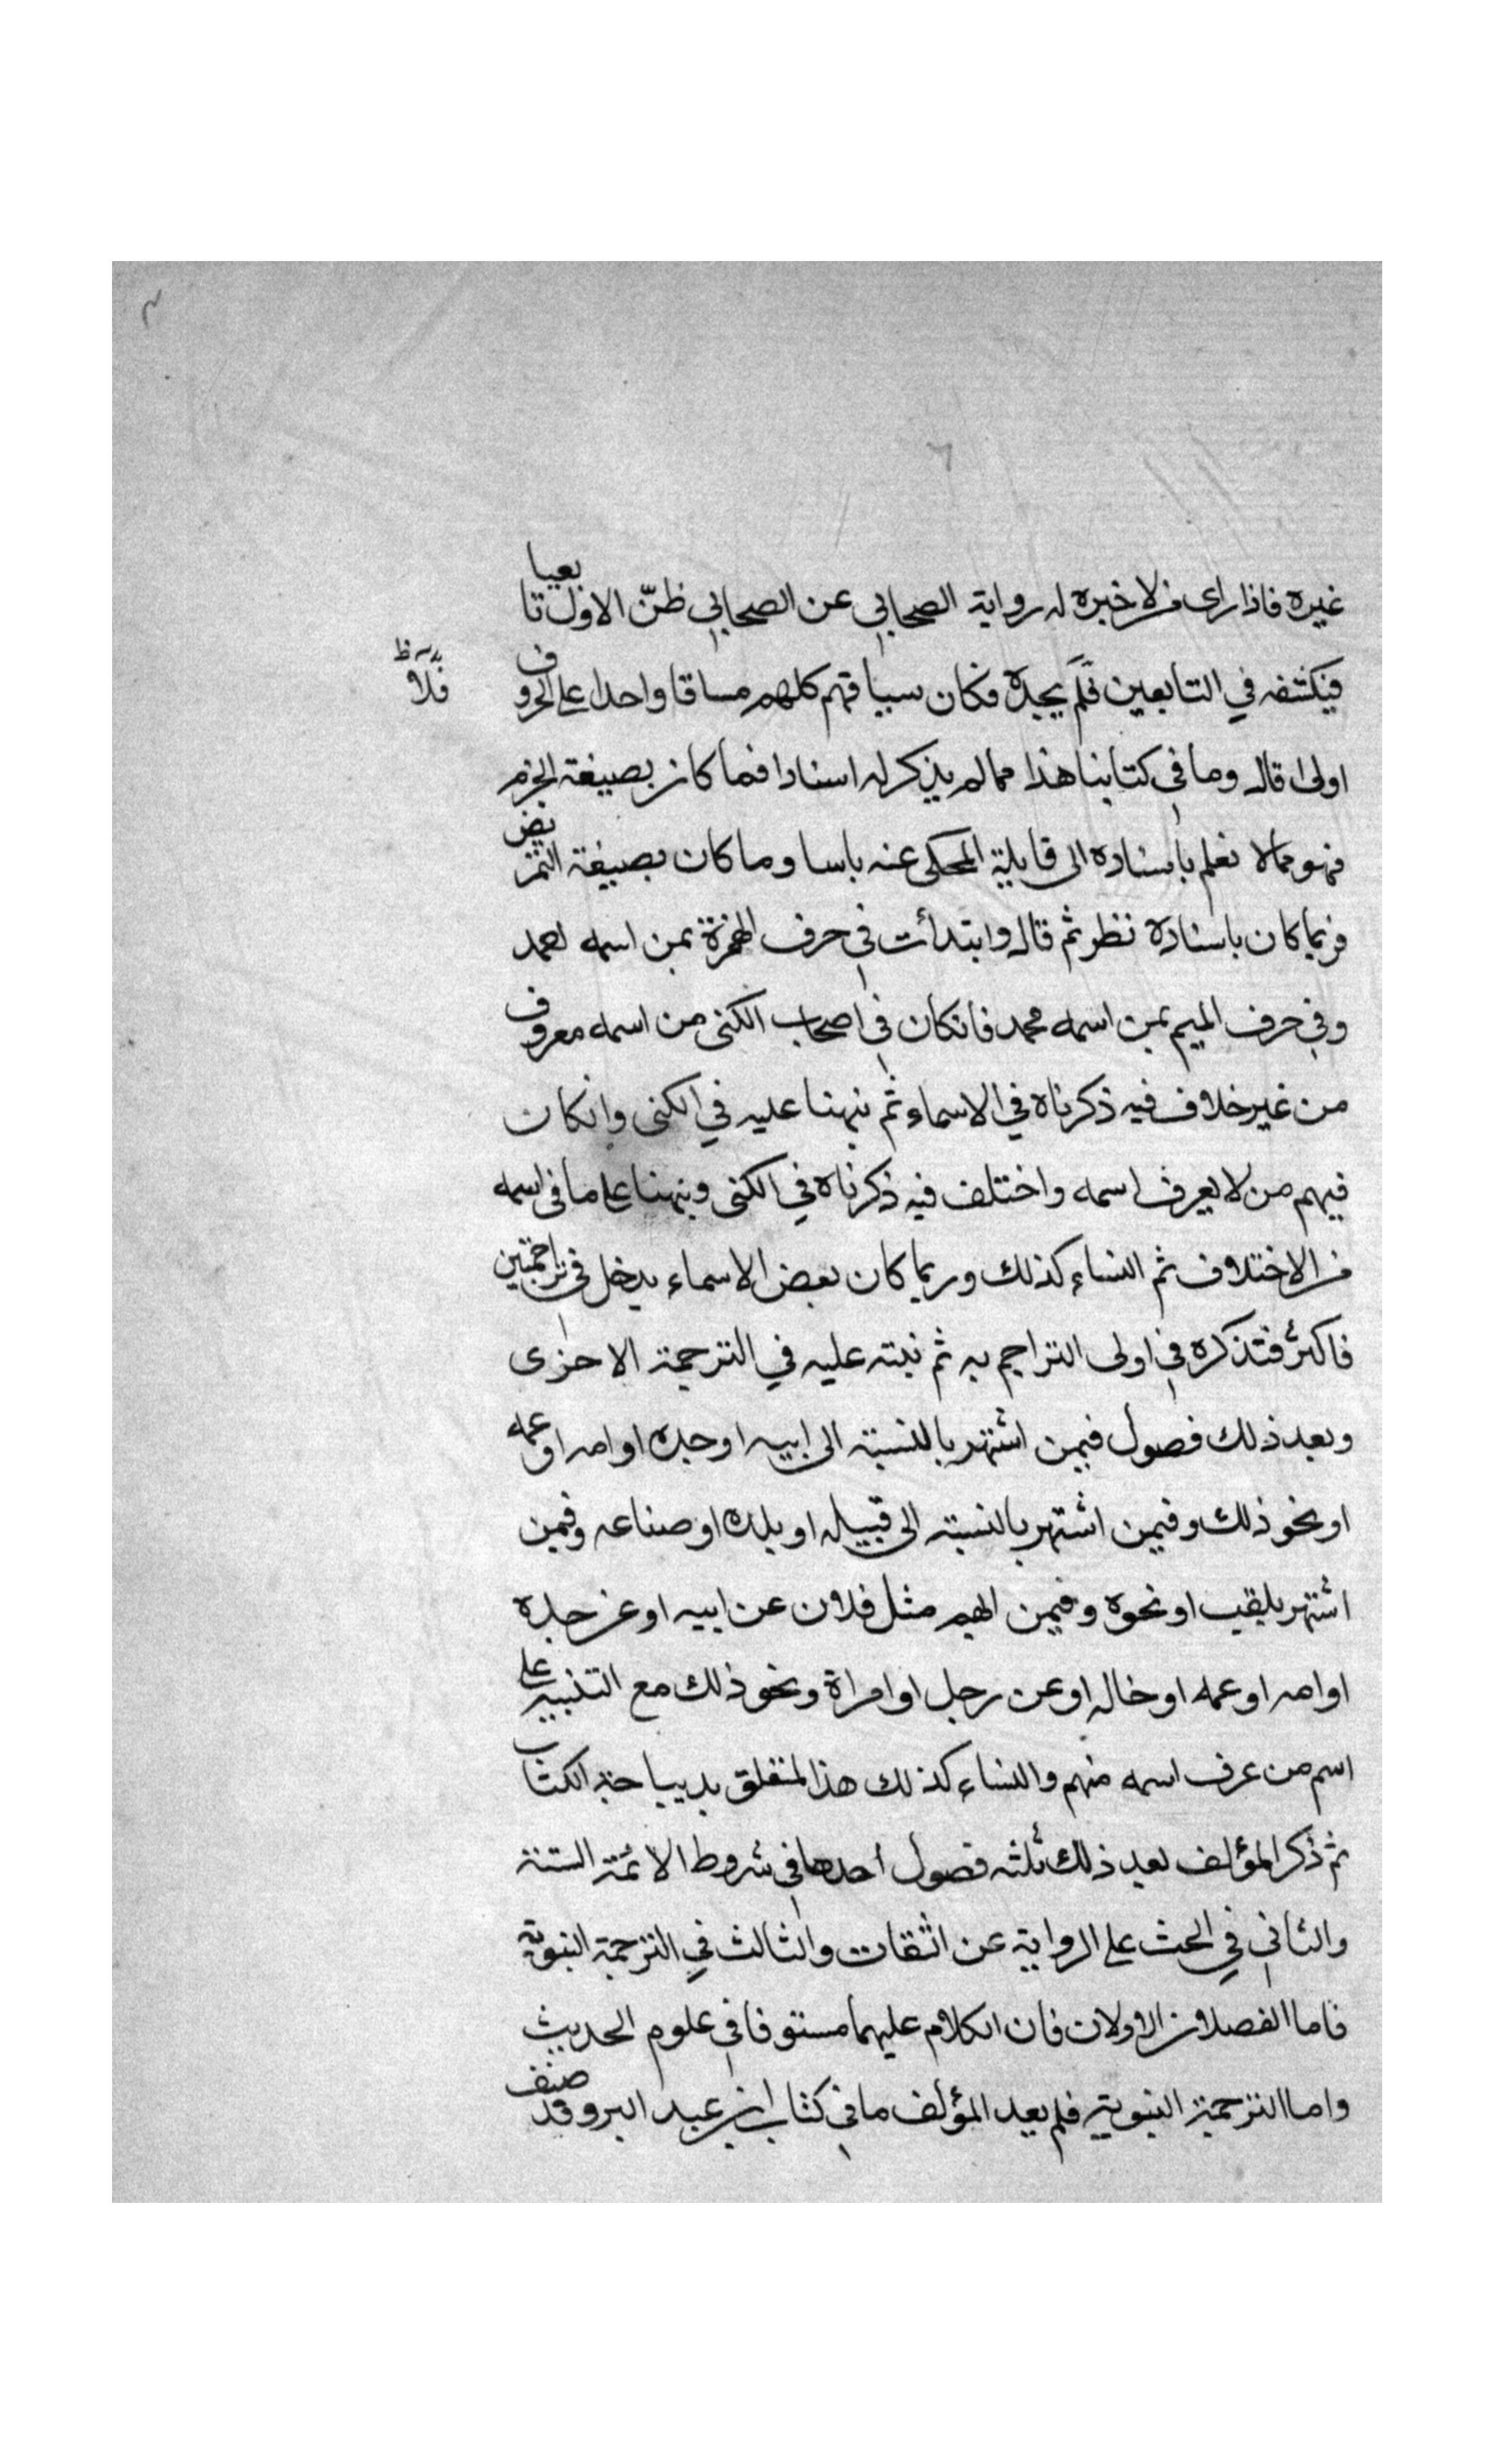 غيره فاذا راى من لا خبره له رواية الصحابي عن الصحابي ظنّ الاول تابعيا
فيكشفه في التابعين فلم يجده فكان سياقهم كلهم مساقا واحدا على الحروف
فلا ظ
اولى قال وما في كتابنا هذا مما لم يذكر له اسنادا فما كان بصيغة الجزم
فهو مما لا نعلم باسناده الى قايلية المحكى عنه باسا وما كان بصيغة التمريض
فربما كان باسناده نظر ثم قال وابتدأت في حرف الهمزة بمن اسمه احمد
وفي حرف الميم بمن اسمه محمد فانكان في اصحاب الكنى من اسمه معروف
من غير خلاف فيه ذكرناه في الاسماء ثم نبهنا عليه في الكنى وانكان
فيهم من لا يعرف اسمه واختلف فيه ذكرناه في الكنى ونبهنا على ما في اسمه
من الاختلاف ثم النساء كذلك وربما كان بعض الاسماء يدخل في تراجمتين
فاكثر فتذكره في اولى التراجم به ثم نبته عليه في الترجمة الاخرى
وبعد ذلك فصول فيمن اشتهر بالنسبة الى ابيه او جده او امه او عمه
او نحو ذلك وفيمن اشتهر بالنسبة الى قبيله او بلده او صناعه وفيمن
اشتهر بلقب او نحوه وفيمن ابهم مثل فلان عن ابيه او عن جده
او امه او عمه او خاله او عن رجل او امراة ونحو ذلك مع التنبيه على
اسم من عرف اسمه منهم والنساء كذلك هذا المتعلق بديباجة الكتاب
ثم ذكر المؤلف بعد ذلك ثلثه فصول احدها في شروط الائمة الستة
والثاني في الحث على الرواية عن الثقات والثالث في الترجمة النبوية
فاما الفصلان الاولان فان الكلام عليهما مستوفا في علوم الحديث
واما الترجمة النبوية فلم يعد المؤلف ما في كتاب ابن عبد البر وقد صنف